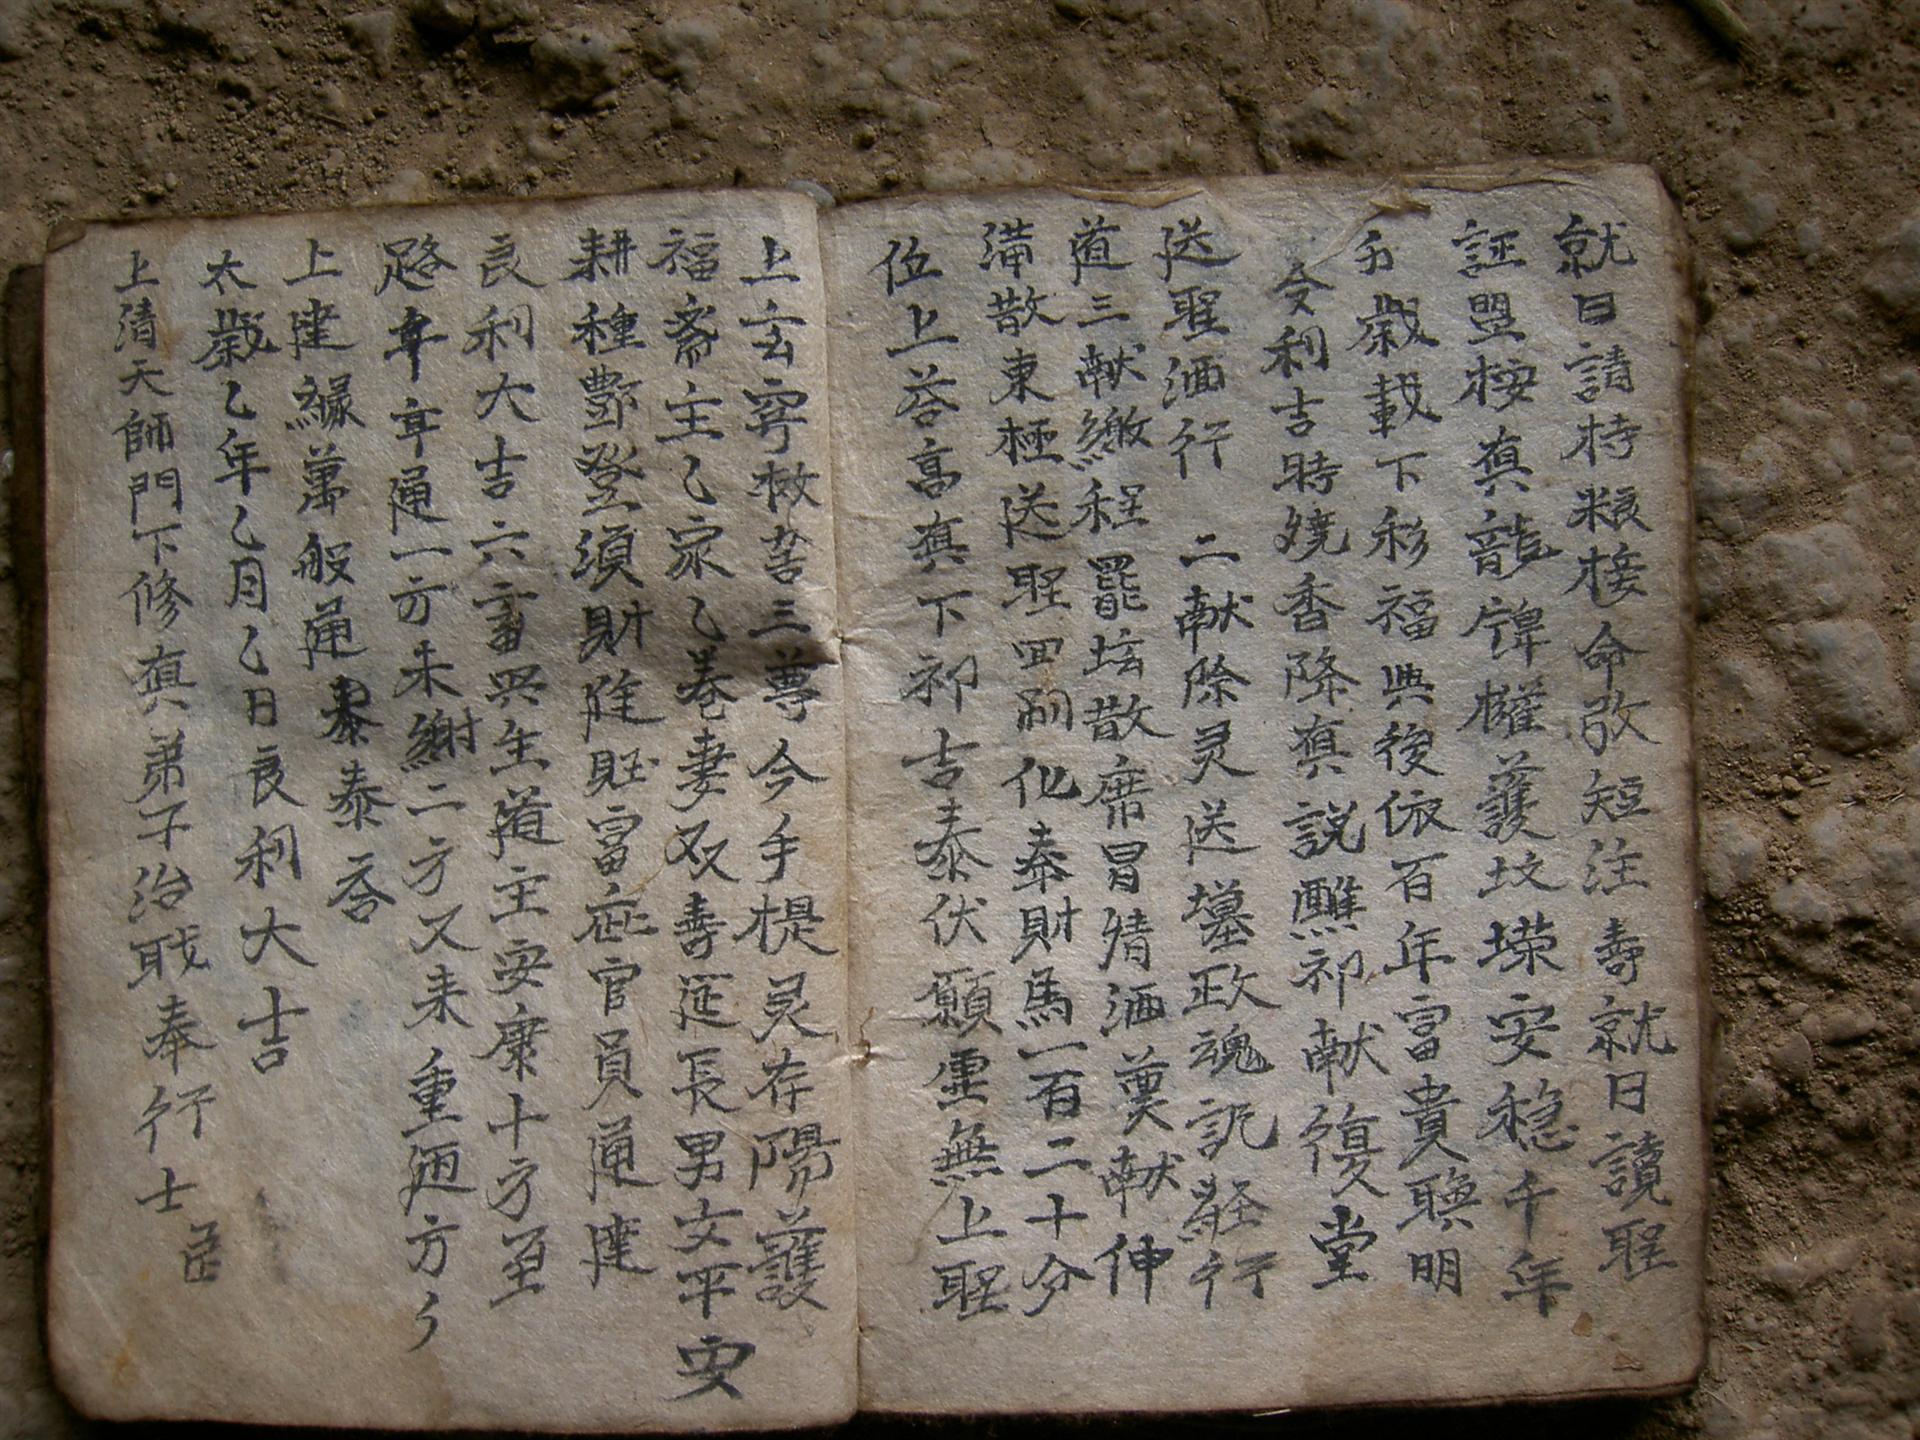 就日請持粮接命改短注壽就日讀聖
証盟桉真龍
權護坟塋安稳千年
歲載下彩福與後依百年富貴聰明
令利吉時燒香降真説醮祁献復堂
送聖洒行 二献除灵送墓政魂
経行
道三献繳程罷坛散席冒清洒奠献伸
满散東極送聖回
化奉財馬一百二十分
位上荅高真下祁吉泰伏願靈無上聖
上玄穹救苦三尊今手提灵存陽護
福斋主乙家乙巻妻双壽延長男女平安
耕種豐登須財旺
旺富庇官員通達
良利大吉六畜兴生道主安康十方至
路年年通一方来謝二方又来重廻方々
上達緣萬般通泰泰
太歲乙年乙月乙日良利大吉
上清天師門下修真弟子治职奉行士臣